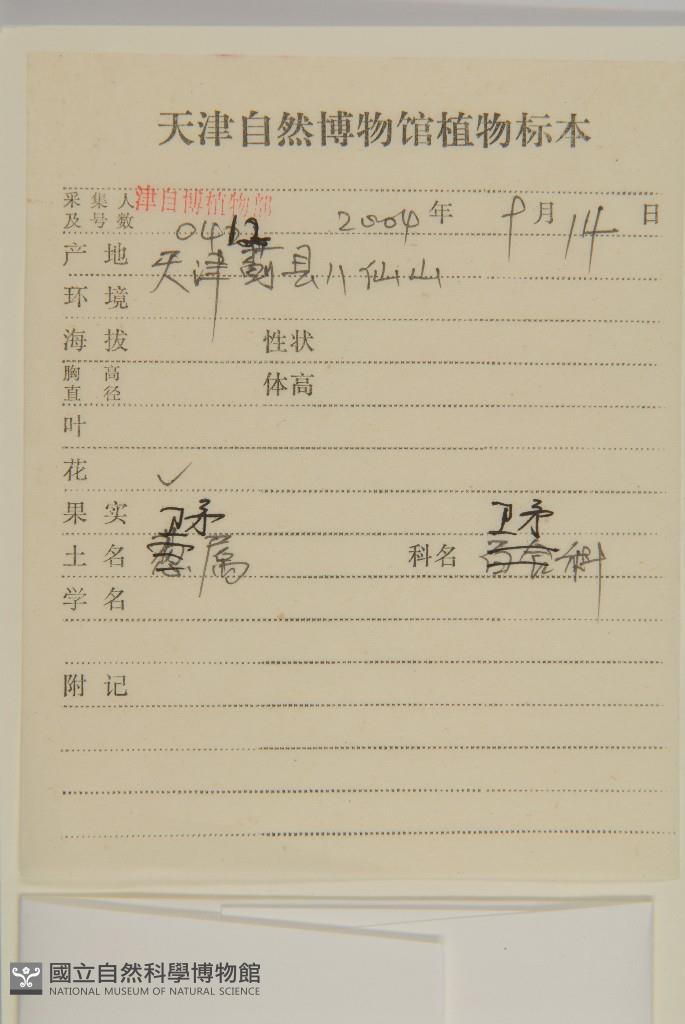 天津自然博物馆植物标本
采集人 津自博植物部
及号数 0412 2004年 9月14日
产地 天津蓟县八仙山
环境
海拔 性状
胸高
直径 体高
叶
花 ✓
果实 卫矛 卫矛
土名 葱属 科名 百合科
学名
附记
國立自然科學博物館
NATIONAL MUSEUM OF NATURAL SCIENCE